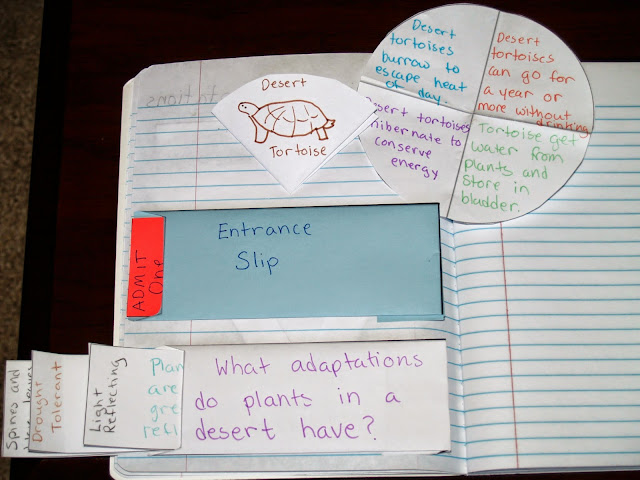 Desert
Tortoise
Desert
tortoises
burrow to
escape heat
of day.
Desert
tortoises
can go for
a year or
more without
drinking
Desert tortoises
hibernate to
conserve
energy
Tortoise get
water from
plants and
store in
bladder.
ADMIT
One
Entrance
Slip
Spines and
Drought
Tolerant
Light
Reflecting
Plan
are
gre
refl
What adaptations
do plants in a
desert have?